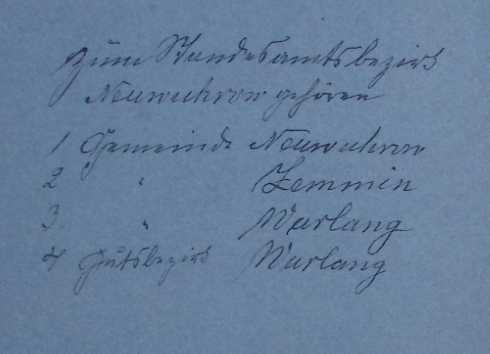 Zum Standesamtsbezirk
Neuwuhrow gehören
1 Gemeinde Neuwuhrow
2 " Zemmin
3. " Warlang
4 Gutsbezirk Warlang